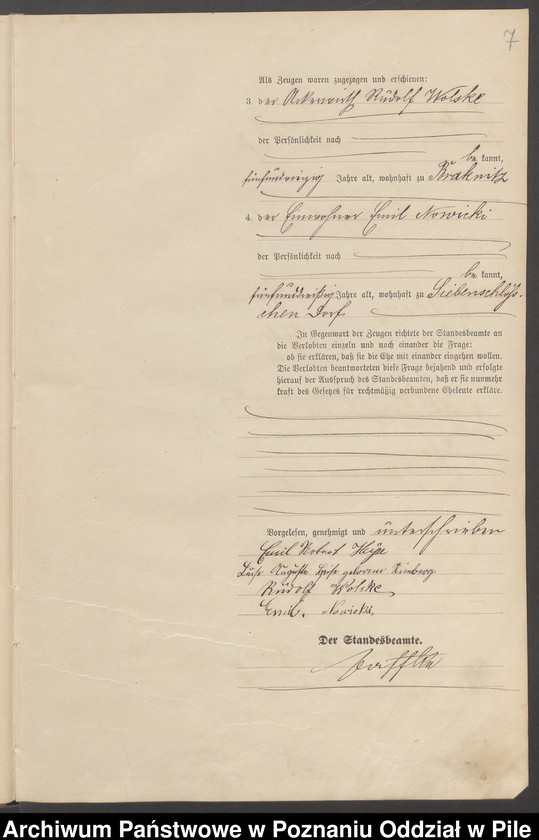 7
Als Zeugen waren zugezogen und erschienen:
3. der Ackerwirth Rudolf Wolske
der Persönlichkeit nach
be kannt,
fünfundvierzig Jahre alt, wohnhaft zu
4. der Einwohner Emil Nowicki
der Persönlichkeit nach
be kannt,
fünfunddreißig Jahre alt, wohnhaft zu Siebenschlöß-
chen Dorf
In Gegenwart der Zeugen richtete der Standesbeamte an
die Verlobten einzeln und nach einander die Frage:
ob sie erklären, daß sie die Ehe mit einander eingehen wollen.
Die Verlobten beantworteten diese Frage bejahend und erfolgte
hierauf der Ausspruch des Standesbeamten, daß er sie nunmehr
kraft des Gesetzes für rechtmäßig verbundene Eheleute erkläre.
Vorgelesen, genehmigt und unterschrieben
Emil Robert
Auguste geborene
Rudolf Wolske
Emil. Nowicki,
Der Standesbeamte.
Archiwum Państwowe w Poznaniu Oddział w Pile